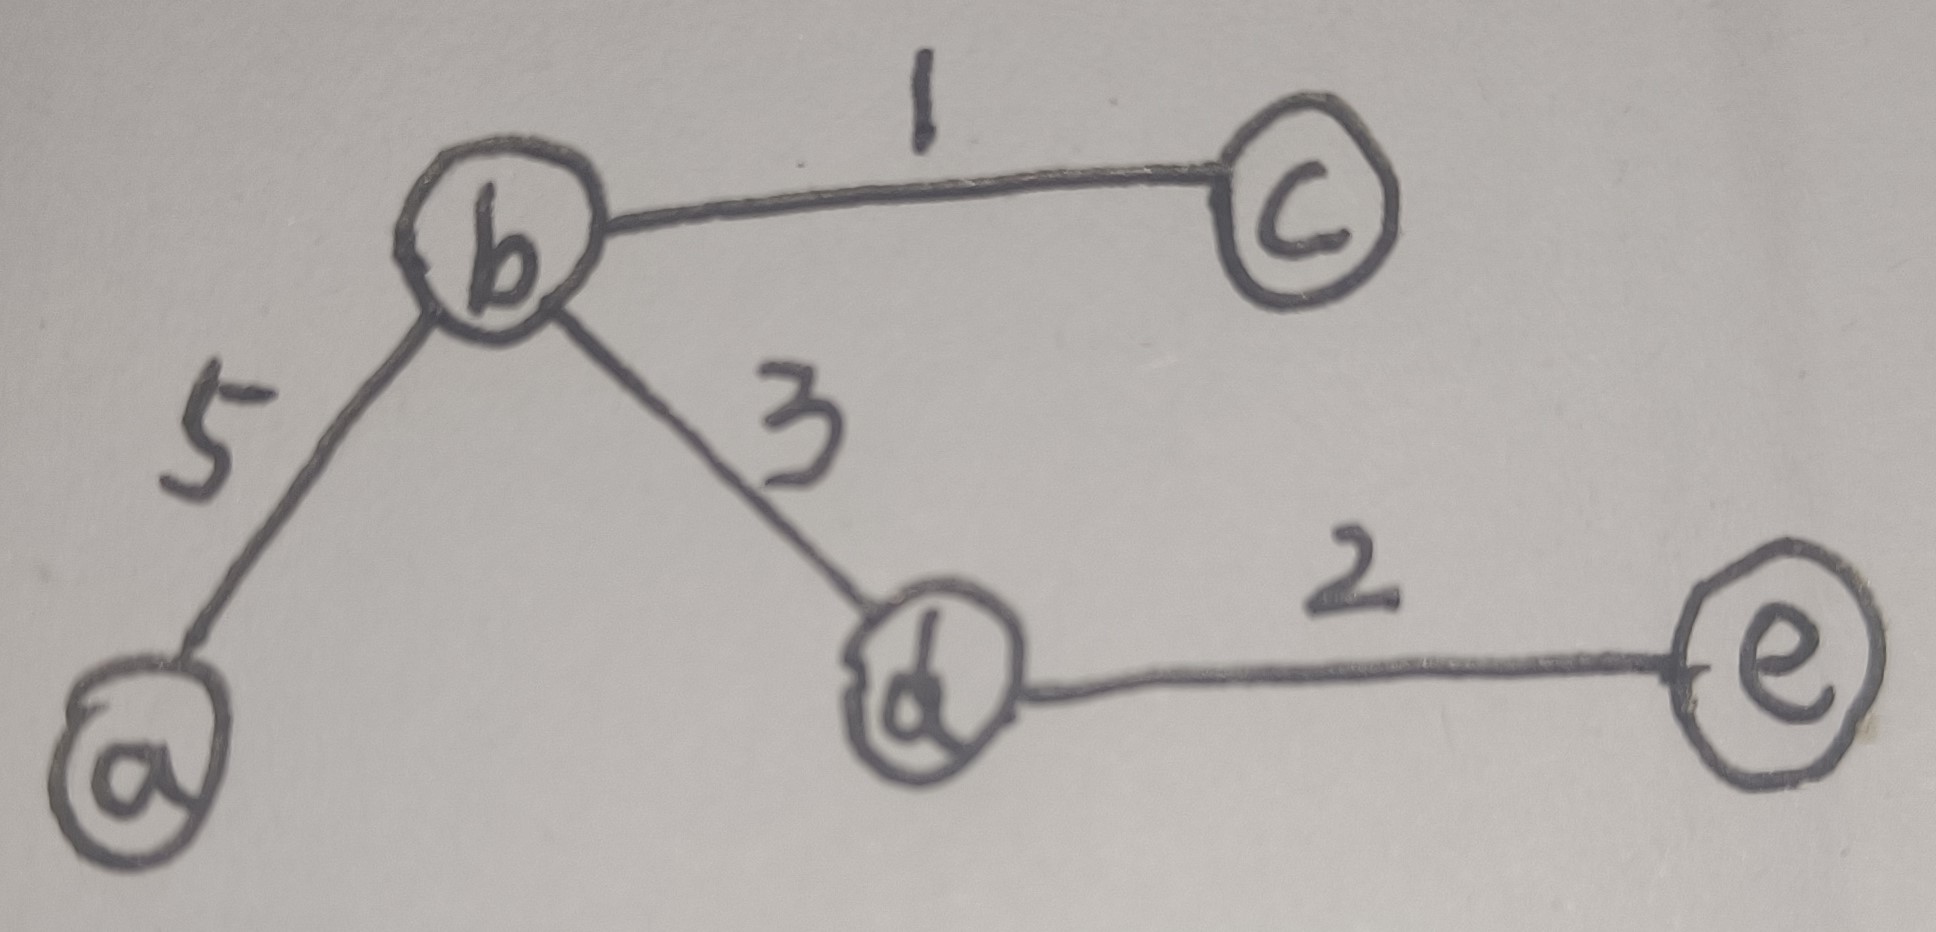 1
b
c
5
3
2
a
d
e